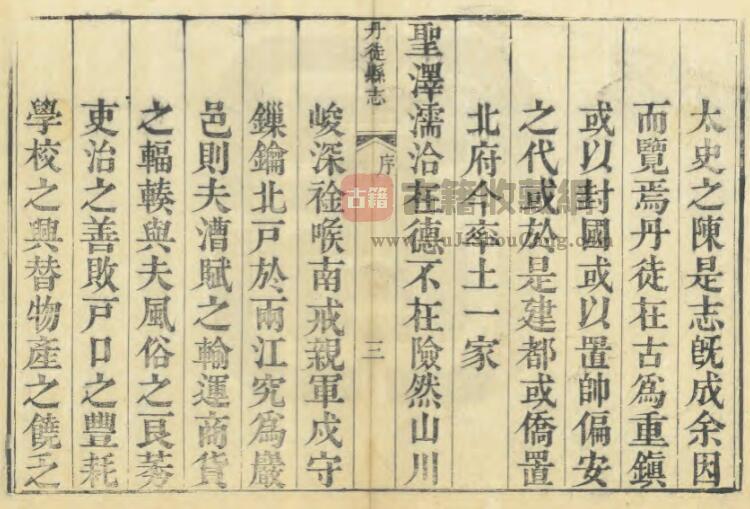 太史之陳是志旣成余因
而覽焉丹徒在古為重鎮
或以封國或以置帥偏安
之代或於是建都或僑置
北府今率土一家
聖澤濡洽在德不在險然山川
丹徒縣志
序
三
峻深襟喉南戒親軍戍守
鏁鑰北戸於兩江究為嚴
邑則夫漕賦之輸運商貨
之輻輳與夫風俗之良莠
吏治之善敗戸口之豐耗
學校之興替物產之饒乏
古籍
古籍收藏網